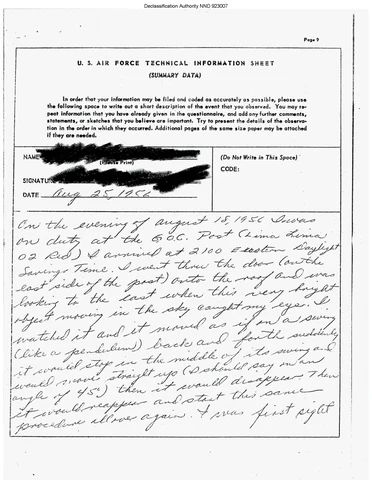 Declassification Authority NND 923007
Page 9
U. S. AIR FORCE TECHNICAL INFORMATION SHEET
(SUMMARY DATA)
In order that your information may be filed and coded as accurately as possible, please use
the following space to write out a short description of the event that you observed. You may re-
peat information that you have already given in the questionnaire, and add any further comments,
statements, or sketches that you believe are important. Try to present the details of the observa-
tion in the order in which they occurred. Additional pages of the same size paper may be attached
if they are needed.
NAME
(Please Print)
(Do Not Write in This Space)
CODE:
SIGNATURE
DATE Aug 25, 1956
On the evening of August 18, 1956 I was
on duty at the G.O.C. Post (Lima Lima
02 Red) I arrived at 2100 Eastern Daylight
Savings Time. I went thru the door (on the
east side of the post) onto the roof and was
looking to the east when this very bright
object moving in the sky caught my eye. I
watched it and it moved as if on a swing
(like a pendulum) back and forth suddenly
it would stop in the middle of its swing and
would move straight up (I should say in an
angle of 45°) then it would disappear. Then
it would reappear and start this same
procedure all over again. I was first sight